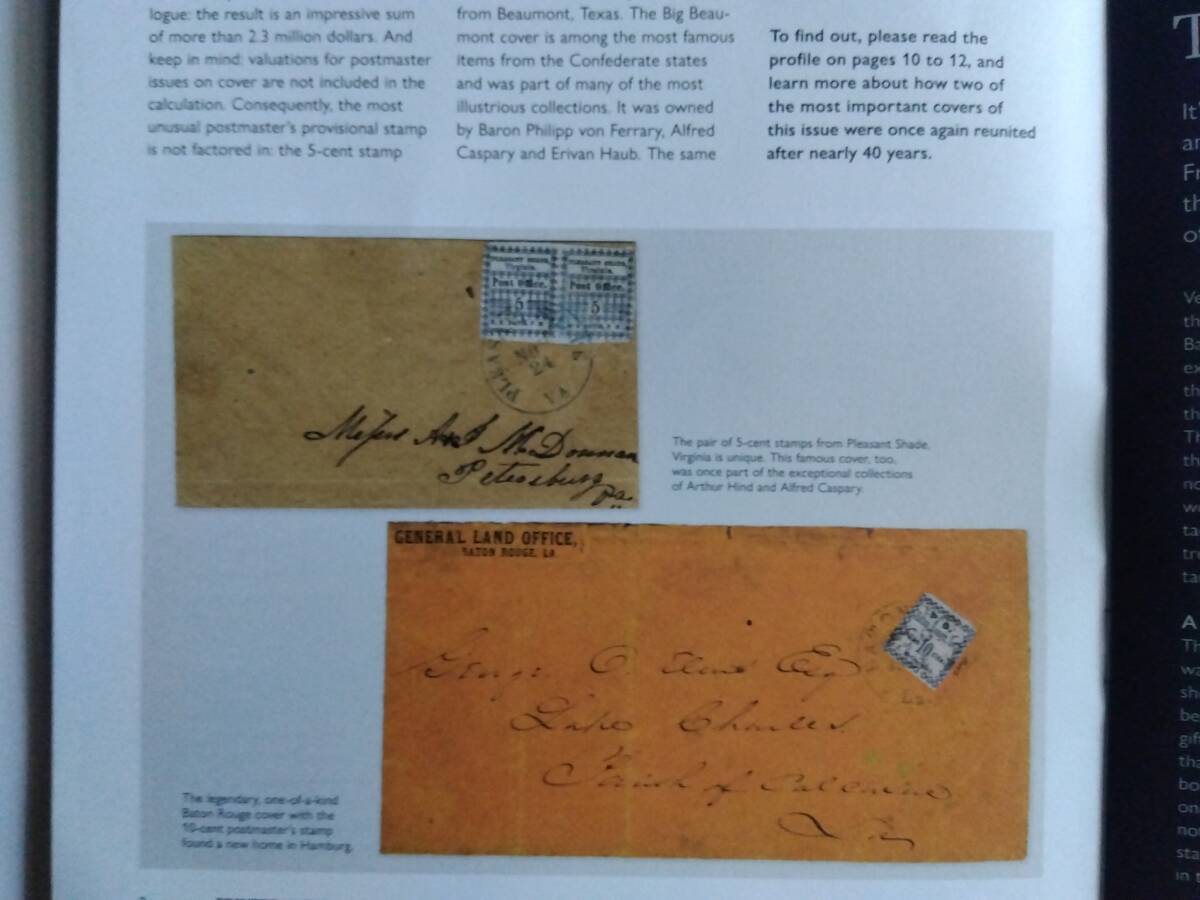 logue: the result is an impressive sum
of more than 2.3 million dollars. And
keep in mind: valuations for postmaster
issues on cover are not included in the
calculation. Consequently, the most
unusual postmaster's provisional stamp
is not factored in: the 5-cent stamp
from Beaumont, Texas. The Big Beau-
mont cover is among the most famous
items from the Confederate states
and was part of many of the most
illustrious collections. It was owned
by Baron Philipp von Ferrary, Alfred
Caspary and Erivan Haub. The same
To find out, please read the
profile on pages 10 to 12, and
learn more about how two of
the most important covers of
this issue were once again reunited
after nearly 40 years.
PLEASANT SHADE,
Virginia.
Post Office.
5
PLEASANT SHADE,
Virginia.
Post Office.
5
PLEAS
24
VA
Petersburg
Va.
The pair of 5-cent stamps from Pleasant Shade,
Virginia is unique. This famous cover, too,
was once part of the exceptional collections
of Arthur Hind and Alfred Caspary.
GENERAL LAND OFFICE,
BATON ROUGE, LA.
10
Esq
Lake Charles
Parish of Calcasieu
La
The legendary, one-of-a-kind
Baton Rouge cover with the
10-cent postmaster's stamp
found a new home in Hamburg.
It
Fr
A